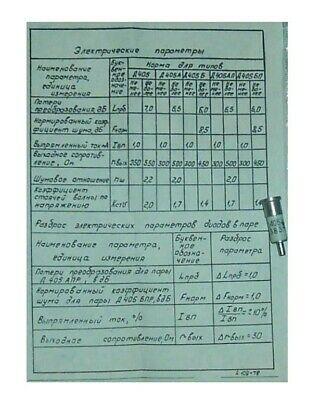 Электрические параметры
Наименование параметра, единица измерения
Буквенное обозначение
Норма для типов
Д405 Д405А Д405Б Д405АП Д405БП
не менее не более не менее не более не менее не более не менее не более не менее не более
Потери преобразования, дБ Lпрб 7,0 6,5 6,0 6,5 6,0
Нормированный коэффициент шума, дБ Fнорм 8,5 8,5
Выпрямленный ток мА Iвп 1,0 1,0 1,0 1,0 1,0
Выходное сопротивление, Ом rвых 250 550 300 500 300 450 300 500 300 450
Шумовое отношение nш 2,2 2,0 2,0
Коэффициент стоячей волны по напряжению КстU 2,0 1,7 1,4 1,7 1,4
Разброс электрических параметров диодов в паре
Наименование параметра, единица измерения
Буквенное обозначение
Разброс параметра
Потери преобразования для пары Д405АПР, в дБ Lпрб Δ Lпрб = 1,0
Нормированный коэффициент шума для пары Д405 БПР, в дБ Fнорм Δ Fнорм = 1,0
Выпрямленный ток, % Iвп Δ Iвп / Iвп = ±10%
Выходное сопротивление, Ом rвых Δ rвых = 30